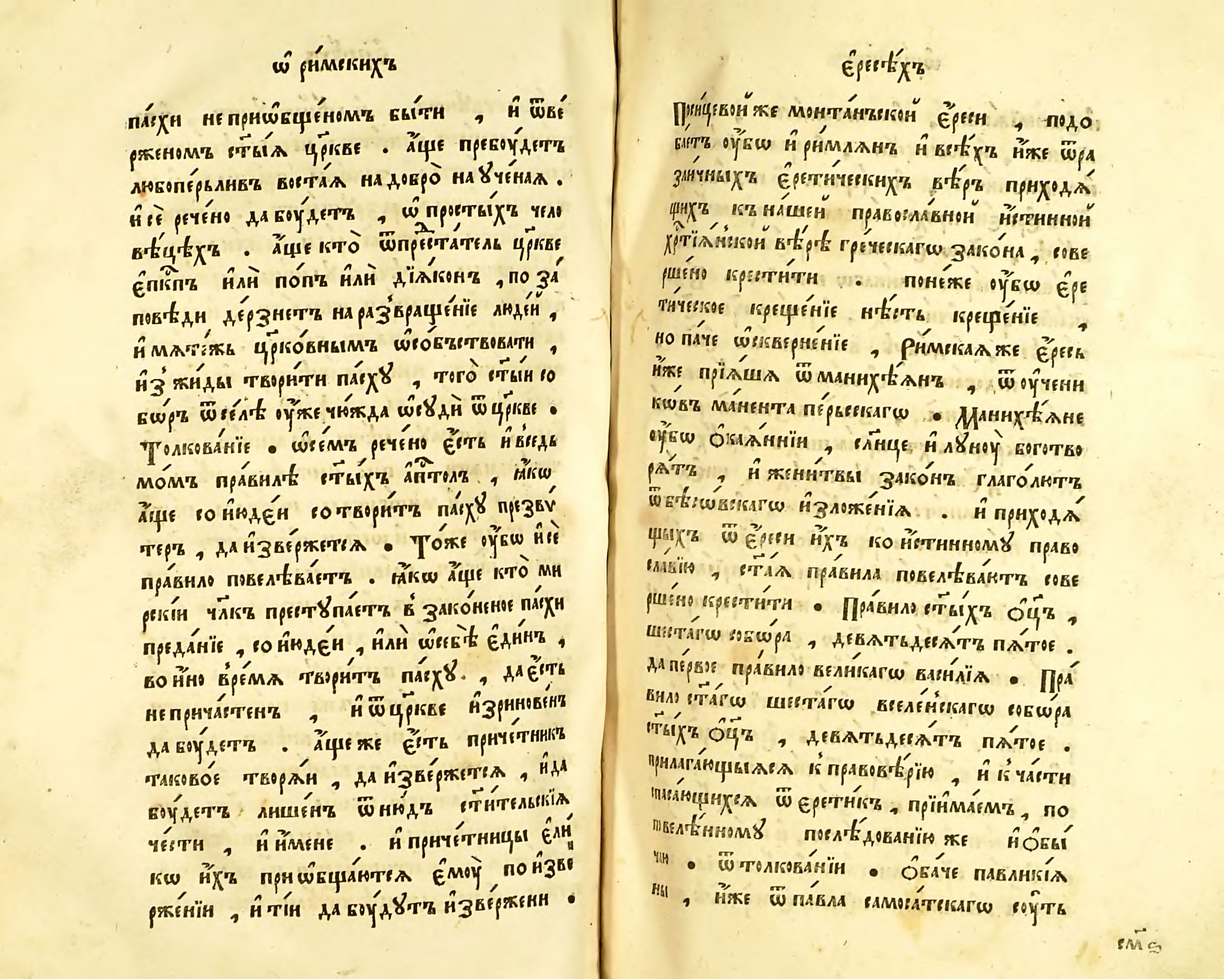 ѡ҆ ри́мскихъ
па́схи неприѡ҆бще́номъ бы́ти , и҆ ѿве́
рженомъ ст҃ы́ѧ цр҃кве . а҆́ще пребоу́детъ
любопе́рьливъ воста́ѧ надобро̀ наꙋче́наѧ .
и҆сѐ рече́но дабоу́детъ , ѡ҆ просты́хъ чело
вѣ́цѣхъ . а҆́ще кто̀ ѿпреста́тель цр҃кве
є҆п҇кпъ и҆лѝ по́пъ и҆лѝ дїѧ́конъ , по за́
повѣди де́рзнетъ нараз̾враще́нїе люде́й ,
и҆ мѧте́жь цр҃ко́внымъ ѡ҆со́бъствовати ,
и҆з̾ жиды твори́ти па́схꙋ , того̀ ст҃ы́и со
бѡ́ръ ѿсе́лѣ оу҆́же чю́жда ѡ҆сꙋдѝ ѿ цр҃кве .
Толкова́нїе . ѡ҆се́мъ рече́но є҆́сть и҆ вседь
мо́мъ пра́вилѣ ст҃ы́хъ а҆п҇толъ , ꙗ҆́кѡ
а҆́ще со и҆юде́и сотвори́тъ па́схꙋ презвѵ́
теръ , да и҆зве́ржетсѧ . То́же оу҆́бѡ и҆ сѐ
пра́вило повелѣва́етъ . ꙗ҆́кѡ а҆́ще кто̀ ми
рскі́и чл҃къ престꙋпа́етъ в̾ зако́неное па́схи
преда́нїе , со и҆юде́и , и҆лѝ ѡ҆себѣ̀ є҆ди́нъ ,
во и҆́но вре́мѧ твори́тъ па́схꙋ . , да є҆́сть
неприча́стенъ , и҆ ѿ цр҃кве и҆зринове́нъ
дабоу́детъ . а҆́щеже є҆́сть приче́тникъ
таково́е творѧ́и , да и҆зве́ржетсѧ , и҆ да
боу́детъ лише́нъ ѿню́дъ ст҃и́тельскїѧ
че́сти , и҆ и҆́мене . и҆ приче́тницы є҆ли́
кѡ и҆́хъ приѡ҆бща́ютсѧ є҆моу̀ по и҆зве
рже́нїи , и҆ ті́и дабоу́дꙋтъ и҆зве́ржени .
є҆ресѣ́хъ
же монта́нъской є҆́реси , подо
ба́етъ оу҆́бѡ и҆ ри́млѧнъ и҆ всѣ́хъ и҆́же ѿ ра
зли́чныхъ є҆рети́ческихъ вѣ́ръ приходѧ́
щихъ к̾ на́шей правосла́вной и҆́стинной
хр҇тїѧ́нской вѣ́рѣ гре́ческагѡ зако́на , сове
рше́но крести́ти . поне́же оу҆́бѡ є҆ре
ти́ческое креще́нїе нѣ́сть креще́нїе ,
но па́че ѡ҆скверне́нїе , Ри́мскаѧже є҆́ресь
и҆́же прїѧ́шѧ ѿ манихѣ́ѧнъ , ѿ оу҆чени
кѡ́въ ма́нента пе́рьсскагѡ . Манихѣ́ѧне
оу҆́бѡ ѻ҆каѧ́ннїи , сл҃нце и҆ лꙋноу̀ боготво
рѧ́тъ , и҆ жени́твы зако́нъ глаго́лютъ
ѿ бѣсѡ́вскагѡ и҆зложе́нїѧ . и҆ приходѧ́
щыхъ ѿ є҆́реси и҆́хъ ко и҆́стинномꙋ право
сла́вїю , ст҃а́ѧ пра́вила повелѣва́ютъ сове
рше́но крести́ти . Пра́вило ст҃ы́хъ ѻ҆ц҃ъ ,
шеста́гѡ собѡ́ра , девѧтьдесѧ́тъ пѧ́тое .
да пе́рвое пра́вило вели́кагѡ васи́лїѧ . Пра́
вило ст҃а́гѡ шеста́гѡ вселе́нскагѡ собѡ́ра
ст҃ы́хъ ѻ҆ц҃ъ , девѧтьдесѧ́тъ пѧ́тое .
прилага́ющыѧсѧ к̾ правовѣ́рїю , и҆ к̾ ча́сти
спаса́ющихсѧ ѿ є҆рети́къ , прїима́емъ , по
повелѣ́нномꙋ послѣ́дованїю же и҆ ѻ҆бы́
чаю . ѿ толкова́нїи . Ѻ҆ба́че павликїѧ́
ны , и҆́же ѿ па́вла самоса́тскагѡ соу́ть
см҃ѕ